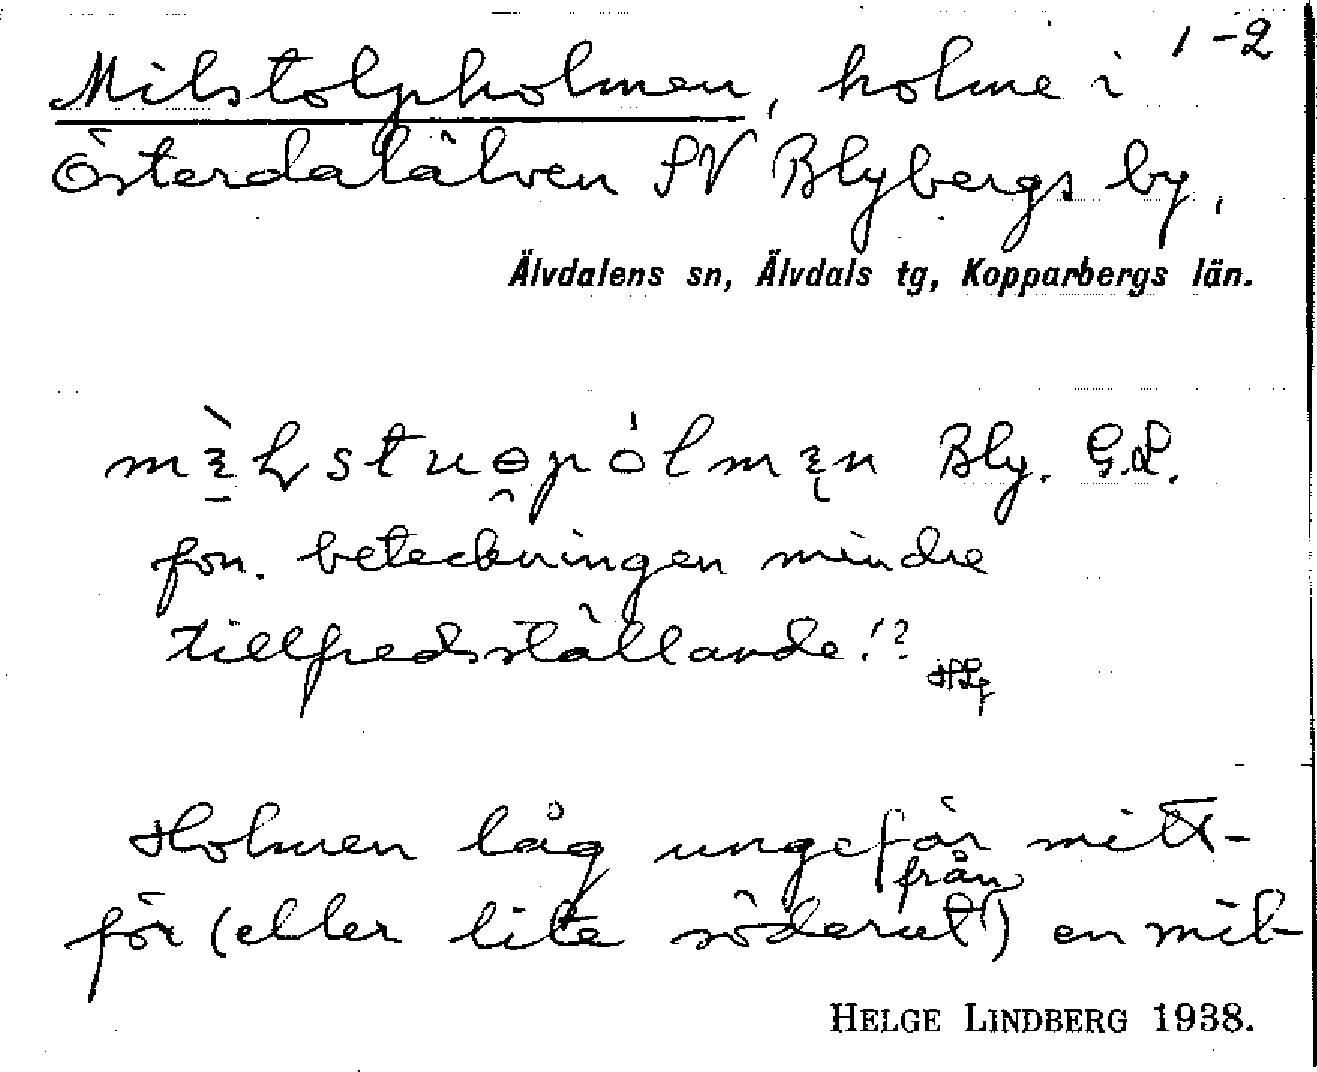 1-2
Milstolpholmen, holme i
Österdalälven SV Blybergs by,
Älvdalens sn, Älvdals tg, Kopparbergs län.
Bly. G.L.
fon. beteckningen mindre
tillfredsställande!?
HLg
Holmen låg ungefär mitt-
från
för (eller lite söderut) en mil-
HELGE LINDBERG 1938.